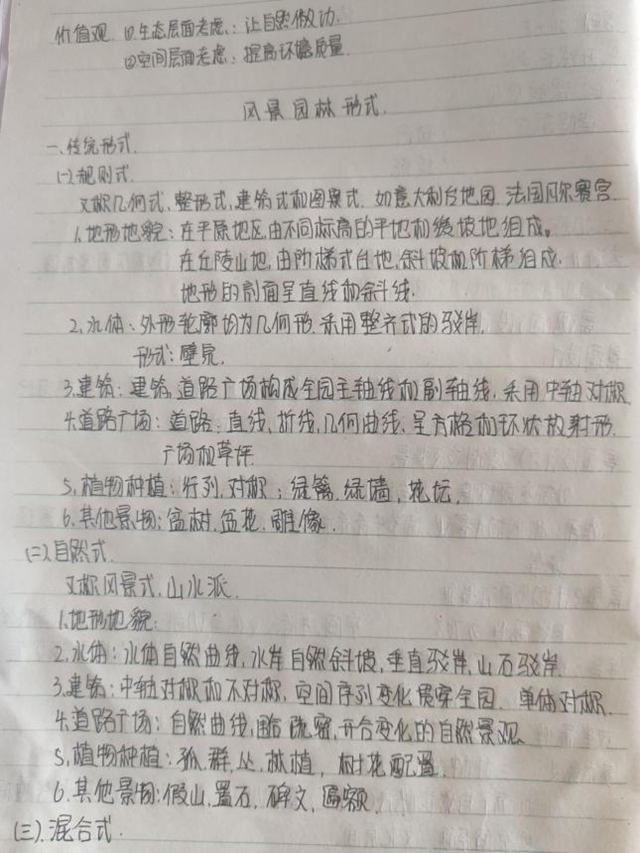 价值观 (1).生态层面考虑:让自然做功.
(2)空间层面考虑:提高环境质量
风景园林形式.
一、传统形式.
(一)规则式.
又称几何式、整形式、建筑式和图案式. 如意大利台地园. 法国凡尔赛宫
1.地形地貌:在平原地区,由不同标高的平地和缓坡地组成。
在丘陵山地,由阶梯式台地,斜坡和阶梯组成.
地形的剖面呈直线和斜线.
2.水体:外形轮廓均为几何形.采用整齐式的驳岸.
形式:壁泉.
3.建筑:建筑,道路广场构成全园主轴线和副轴线,采用中轴对称
4.道路广场:道路:直线,折线,几何曲线,呈方格和环状放射形.
广场和草坪.
5.植物种植:行列,对称;绿篱,绿墙,花坛.
6.其他景物:盆树,盆花,雕像.
(二)自然式.
又称风景式,山水派.
1.地形地貌:
2.水体:水体自然曲线,水岸自然斜坡,垂直驳岸,山石驳岸.
3.建筑:中轴对称和不对称,空间序列变化贯穿全园. 单体对称.
4.道路广场:自然曲线,疏密,开合变化的自然景观.
5.植物种植:孤,群,丛,林植,树花配置.
6.其他景物:假山,置石,碑文,匾额.
(三).混合式.